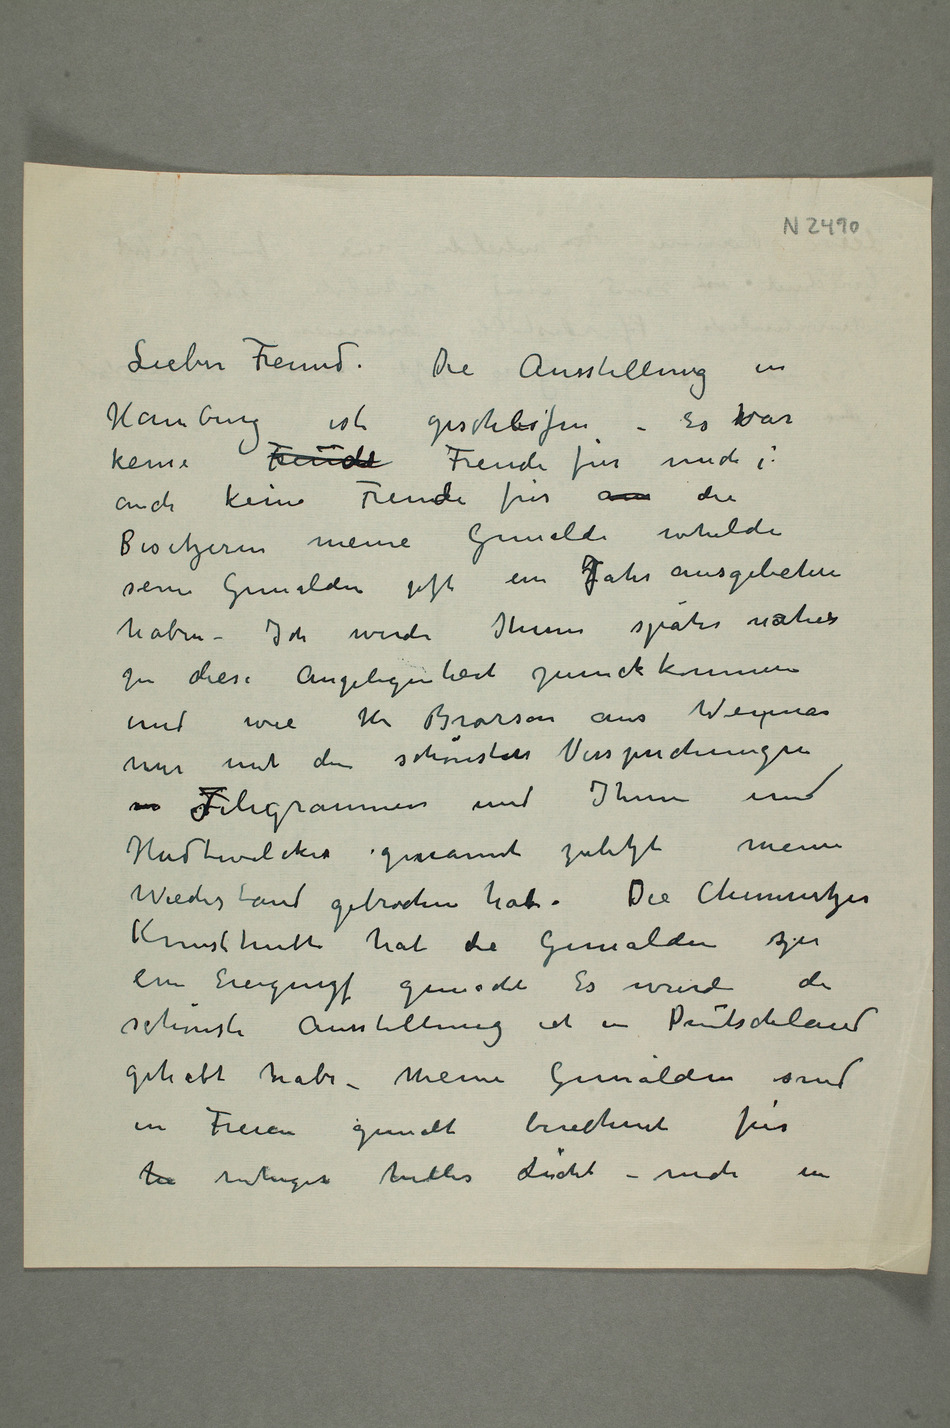 N 2490
Lieber Freund. Die Ausstellung in
Hamburg ist geschlosfen – Es war
keine Freude Freude für mich i
auch keine Freude für die
Besitzeren meine Gemälde whelde
seine Gemälden ein Jahr ausgebeten
haben – Ich werde Ihnen später näher
zu diese Angelegenheit zurückkommen
und wie Hr Brorson aus Weimar
mir mit den schönsten Versprechungen
Telegrammen und Ihnen und
Hudtwalcker genannt zuletzt meine
Wiederstand gebrochen hat. Die Chemnitzer
Kunsthütte hat die Gemälden zu
ein gemacht Es wurde die
schönste Ausstellung ich in Deutschland
gehabt habe – Meine Gemälden sind
in Freien gemalt berechnet für
ruhiges helles Licht – nich in